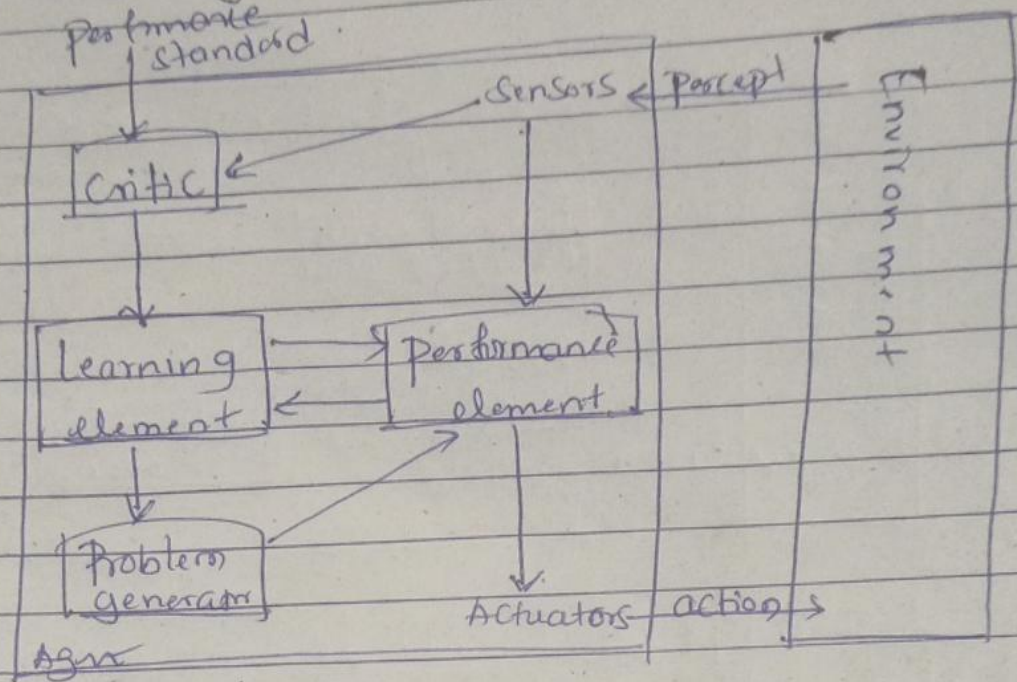 Performance
standard.
Sensors
Percept
Environment
Critic
Learning
element
Performance
element
Problem
generator
Actuators
action
Agent